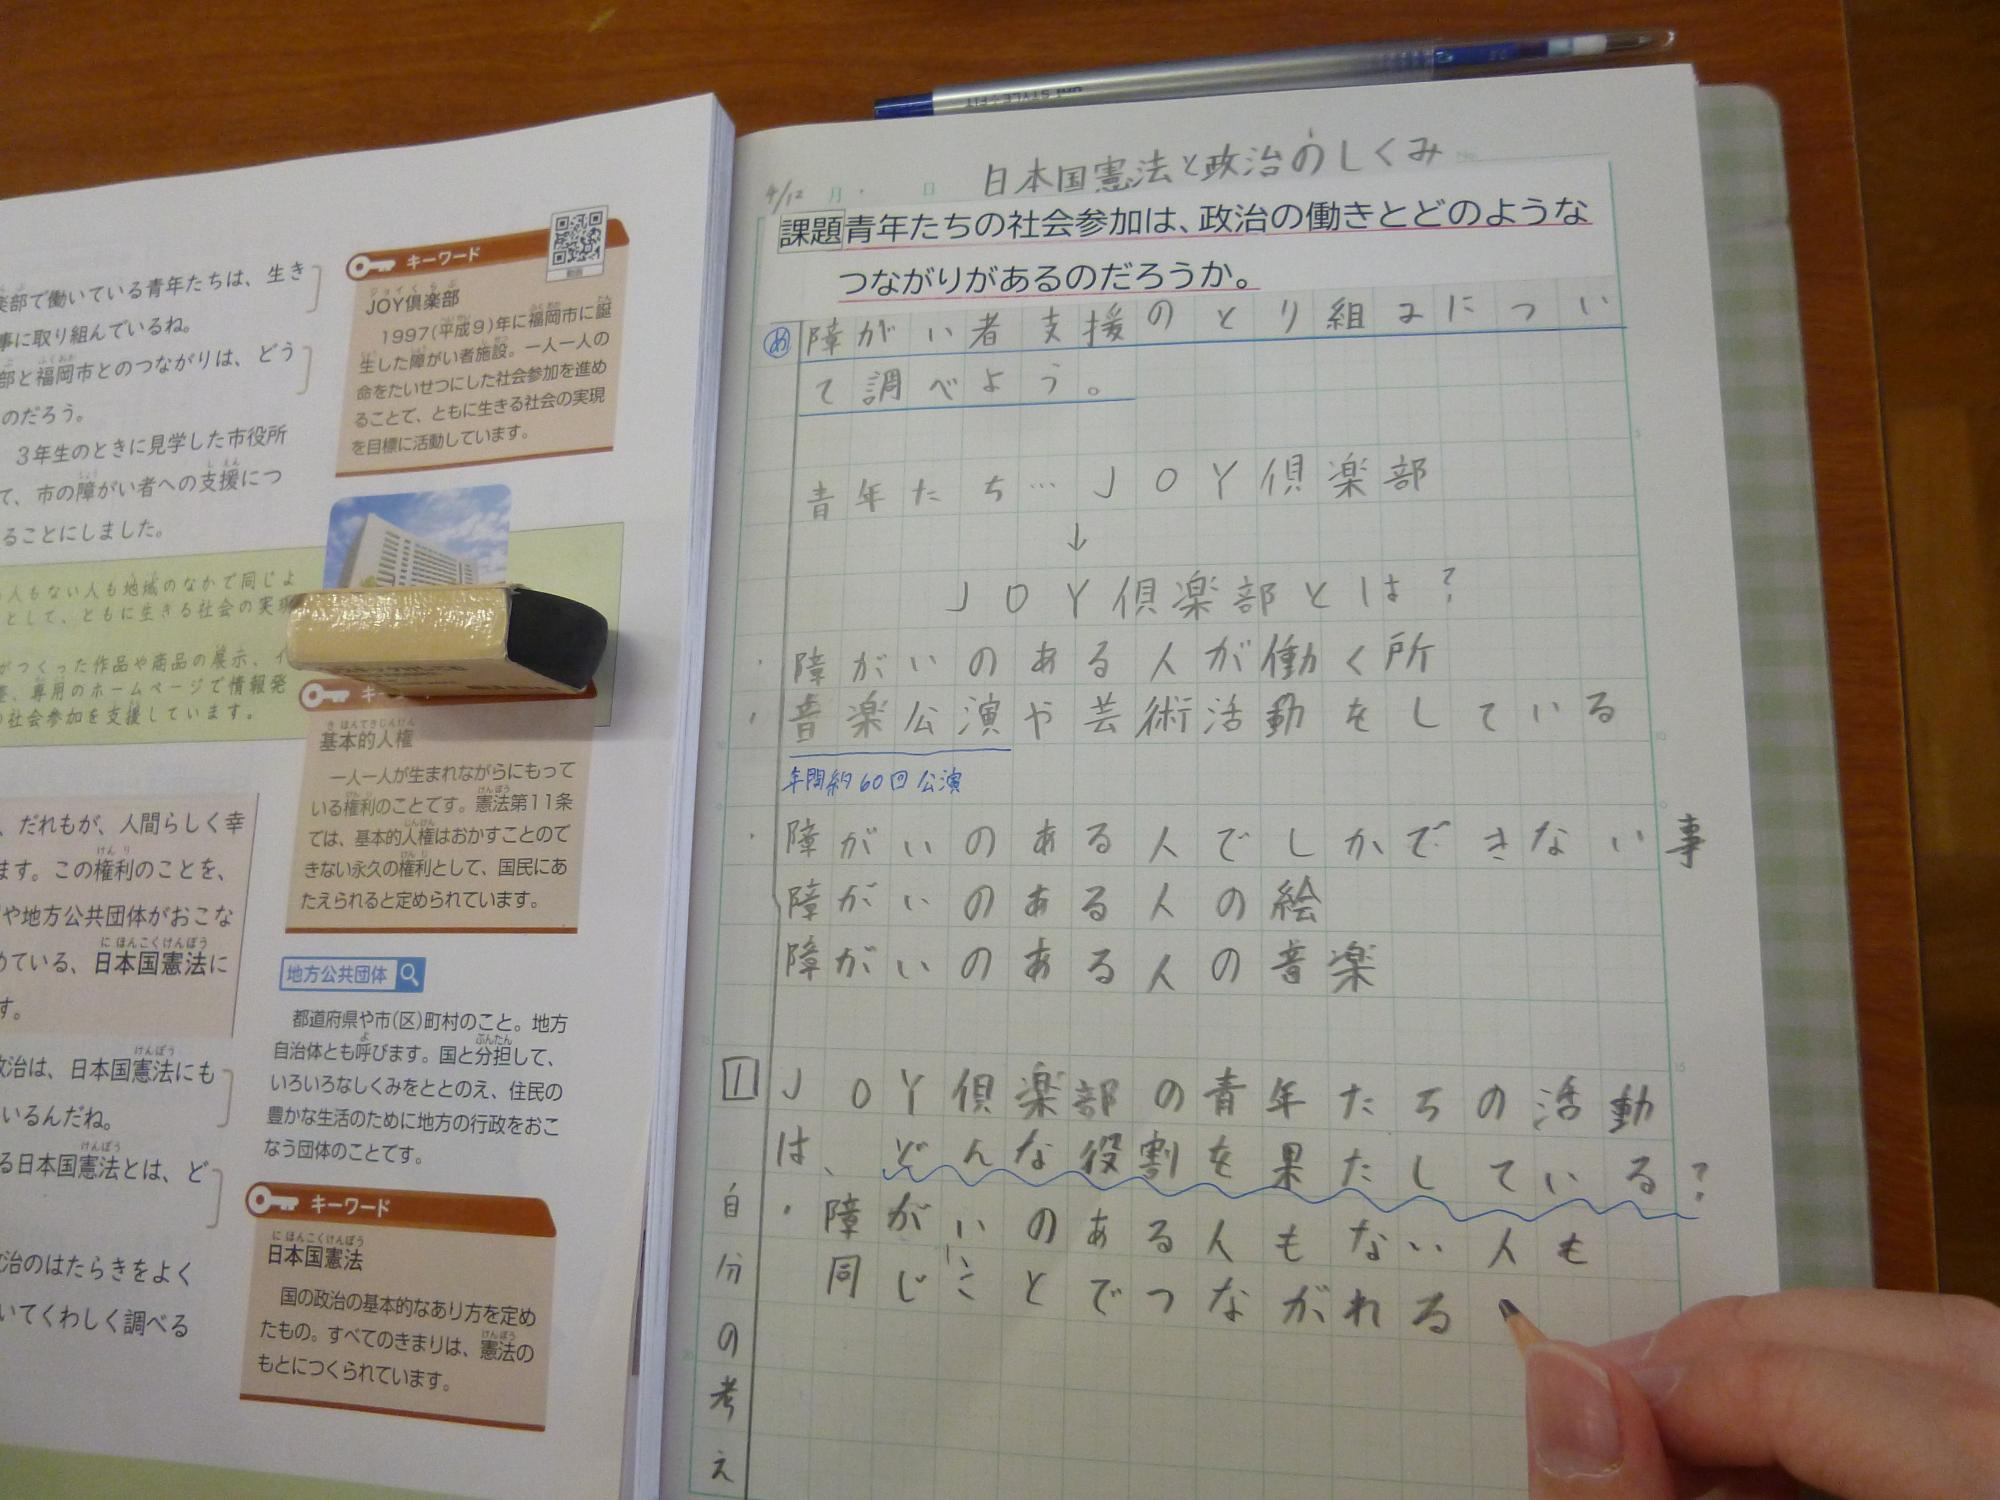 楽部で働いている青年たちは、生き
事に取り組んでいるね。
部と福岡市とのつながりは、どう
のだろう。
3年生のときに見学した市役所
て、市の障がい者への支援につ
ることにしました。
人もない人も地域のなかで同じよ
として、ともに生きる社会の実現
がつくった作品や商品の展示、イ
専用のホームページで情報発
社会参加を支援しています。
、だれもが、人間らしく幸
ます。この権利のことを、
や地方公共団体がおこな
めている、日本国憲法に
す。
政治は、日本国憲法にも
いるんだね。
る日本国憲法とは、ど
政治のはたらきをよく
いてくわしく調べる
キーワード
動画
JOY倶楽部
1997(平成9)年に福岡市に誕
生した障がい者施設。一人一人の
命をたいせつにした社会参加を進め
ることで、ともに生きる社会の実現
を目標に活動しています。
基本的人権
一人一人が生まれながらにもって
いる権利のことです。憲法第11条
では、基本的人権はおかすことので
きない永久の権利として、国民にあ
たえられると定められています。
地方公共団体
都道府県や市(区)町村のこと。地方
自治体とも呼びます。国と分担して、
いろいろなしくみをととのえ、住民の
豊かな生活のために地方の行政をおこ
なう団体のことです。
キーワード
日本国憲法
国の政治の基本的なあり方を定め
たもの。すべてのきまりは、憲法の
もとにつくられています。
uni STYLE FIT
4/12 月 日 日本国憲法と政治のしくみ
課題 青年たちの社会参加は、政治の働きとどのような
つながりがあるのだろうか。
め 障がい者支援のとり組みについ
て調べよう。
青年たち…JOY倶楽部
↓
JOY倶楽部とは?
・障がいのある人が働く所
・音楽公演や芸術活動をしている
年間約60回公演
・障がいのある人でしかできない事
障がいのある人の絵
障がいのある人の音楽
1 JOY倶楽部の青年たちの活動
は、どんな役割を果たしている?
自分の考え
・障がいのある人もない人も
同じことでつながれる